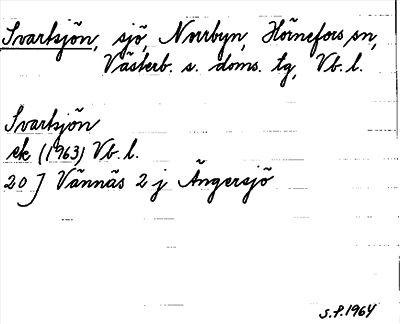 Svartsjön, sjö, Norrbyn, Hörnefors sn,
Västerb. s. doms. tg, Vb. l.
Svartsjön
ek (1963) Vb. l.
20 J Vännäs 2 j Ängersjö
S.P. 1964